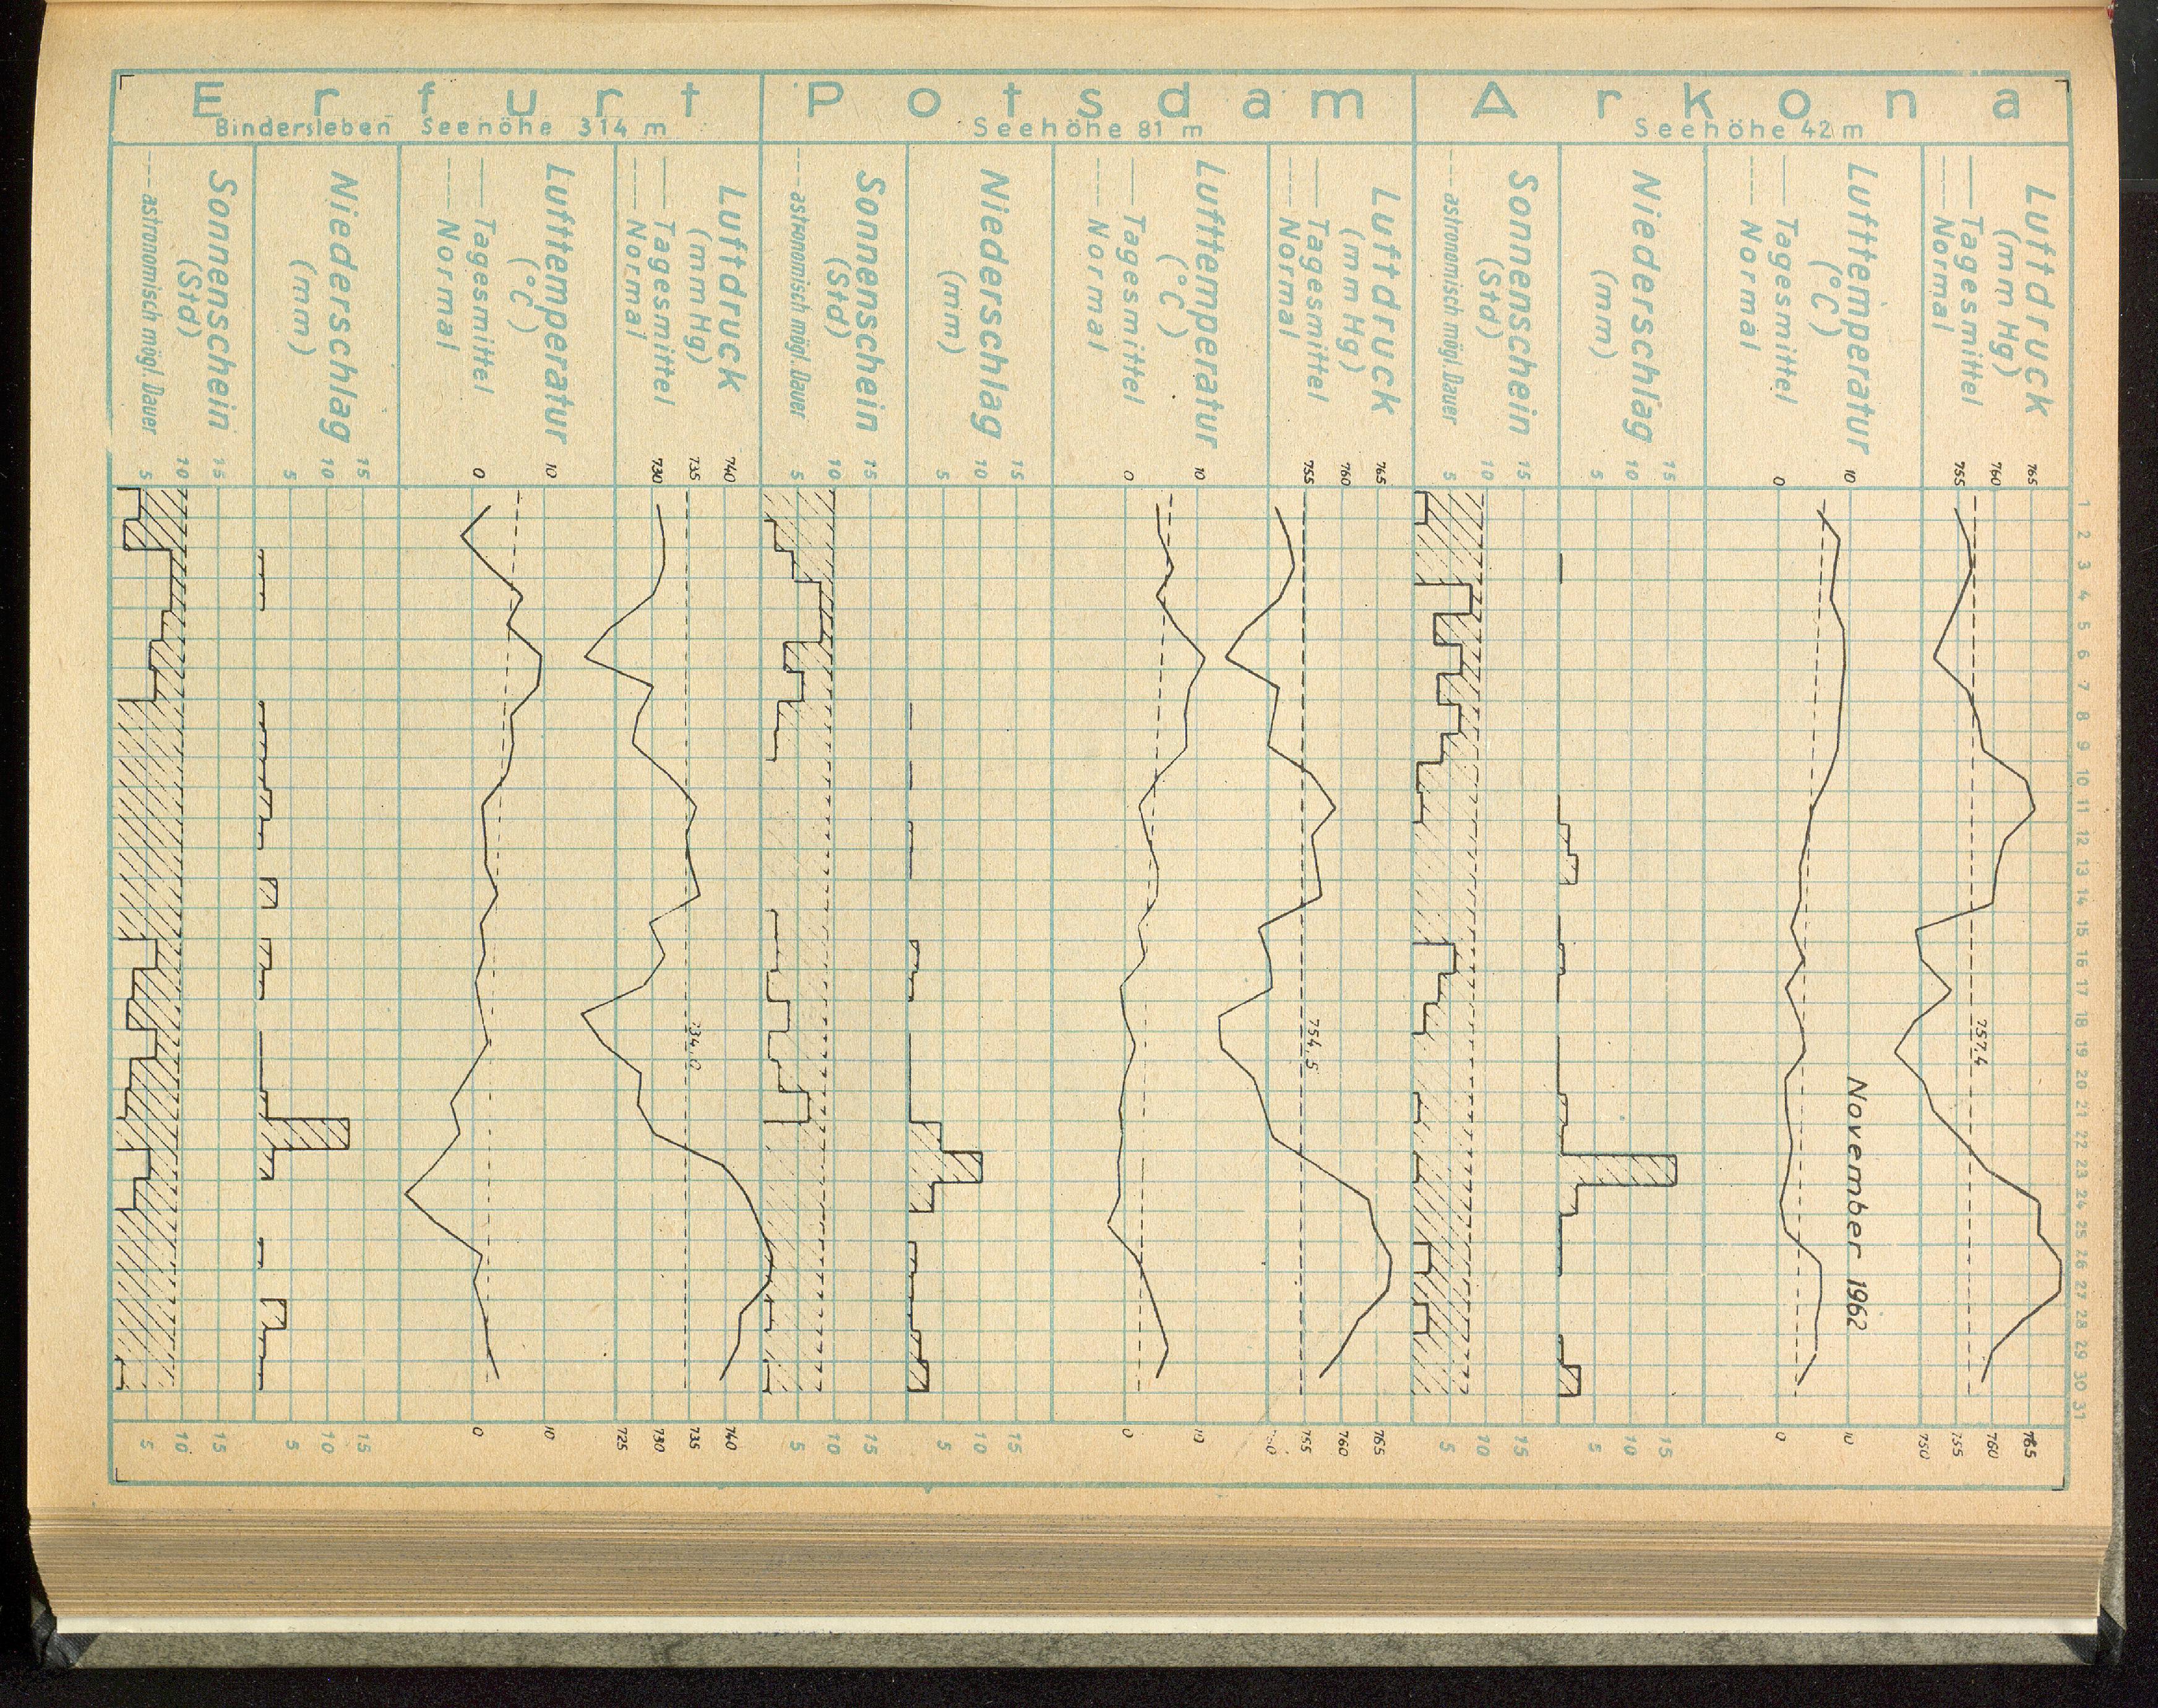 Arkona
Seehöhe 42 m
Luftdruck
(mm Hg)
—— Tagesmittel
---- Normal
755 760 765
Lufttemperatur
(°C)
—— Tagesmittel
---- Normal
0 10
Niederschlag
(mm)
5 10 15
Sonnenschein
(Std)
---- astronomisch mögl. Dauer
5 10 15
1 2 3 4 5 6 7 8 9 10 11 12 13 14 15 16 17 18 19 20 21 22 23 24 25 26 27 28 29 30 31
757,4
November 1962
750 755 760 765
0 10
5 10 15
5 10 15
Potsdam
Seehöhe 81 m
Luftdruck
(mm Hg)
—— Tagesmittel
---- Normal
755 760 765
Lufttemperatur
(°C)
—— Tagesmittel
---- Normal
0 10
Niederschlag
(mm)
5 10 15
Sonnenschein
(Std)
---- astronomisch mögl. Dauer
5 10 15
754,5
755 760 765
0 10
5 10 15
5 10 15
Erfurt
Bindersleben Seehöhe 314 m
Luftdruck
(mm Hg)
—— Tagesmittel
---- Normal
730 735 740
Lufttemperatur
(°C)
—— Tagesmittel
---- Normal
0 10
Niederschlag
(mm)
5 10 15
Sonnenschein
(Std)
---- astronomisch mögl. Dauer
5 10 15
734,0
725 730 735 740
0 10
5 10 15
5 10 15